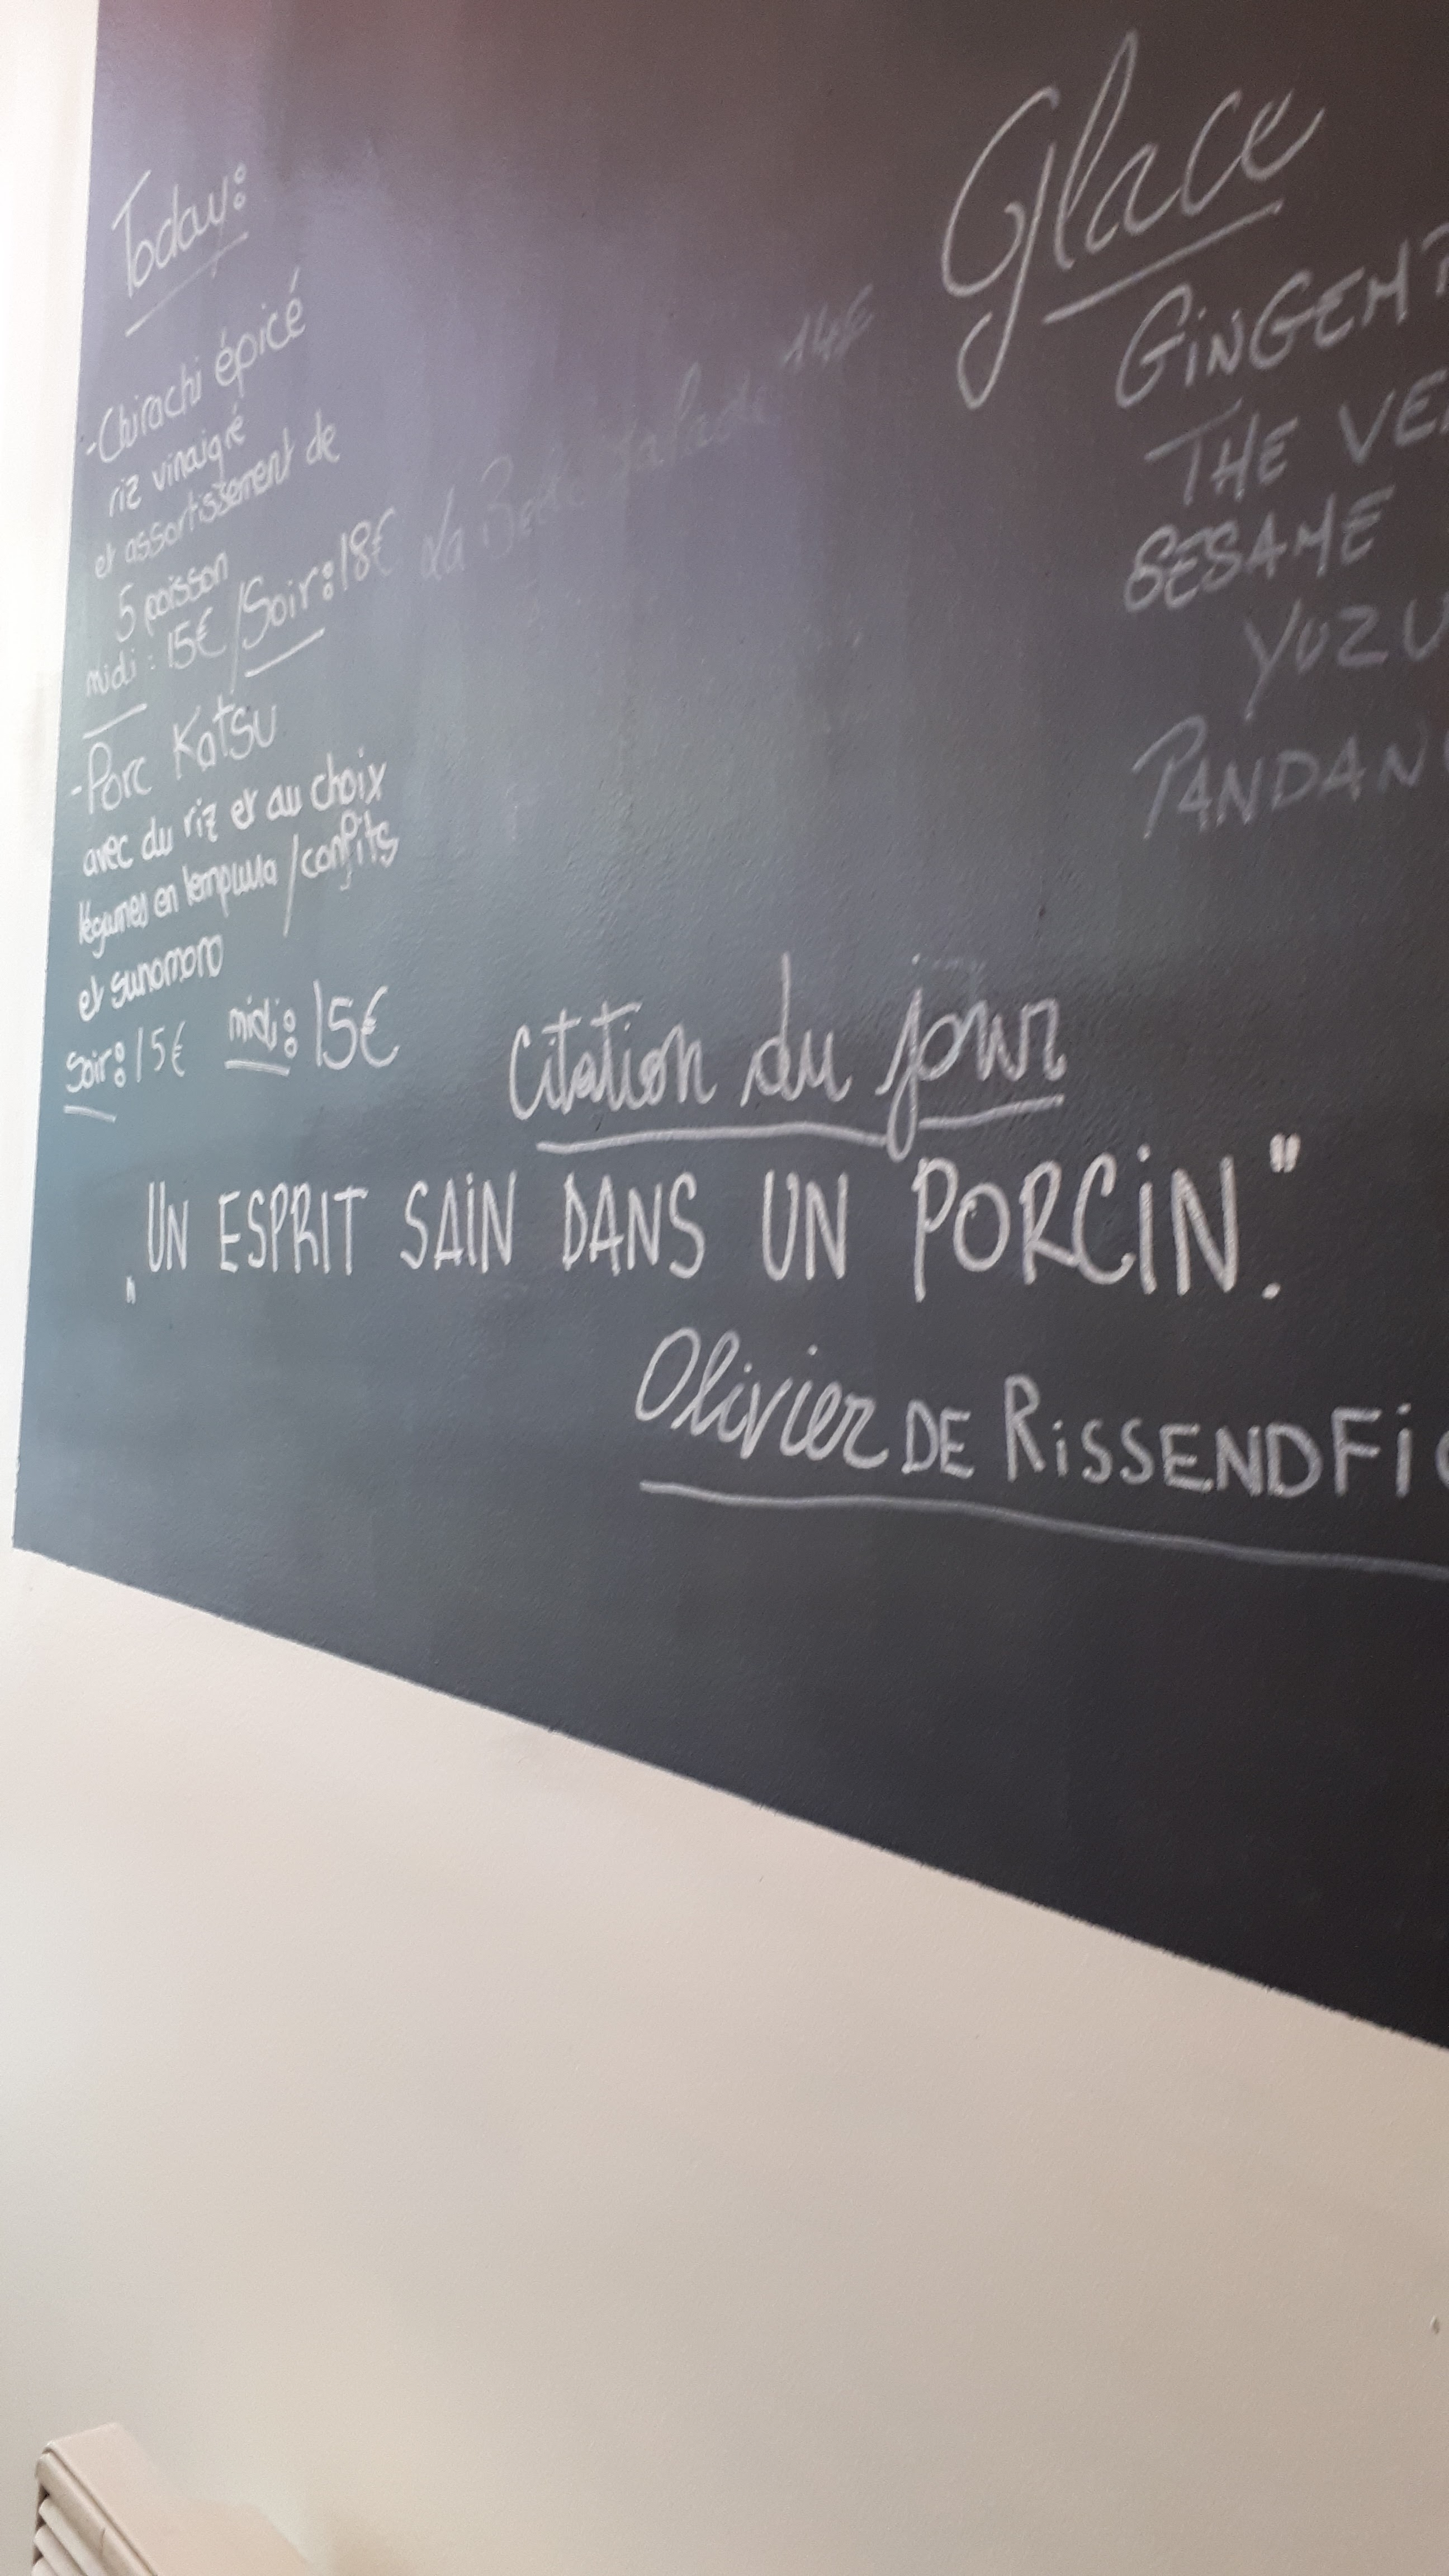 Today:
-Chirachi épicé
riz vinaigré
et assortissement de
5 poisson
midi : 15€ / Soir : 18€
-Porc Katsu
avec du riz et au choix
légumes en tempura / confits
et sunomono
Soir : 15€ midi : 15€
La 14€
Glace
GINGEM
THE VE
SESAME
YUZU
PANDAN
Citation du jour
"UN ESPRIT SAIN DANS UN PORCIN."
Olivier DE RISSENDFI